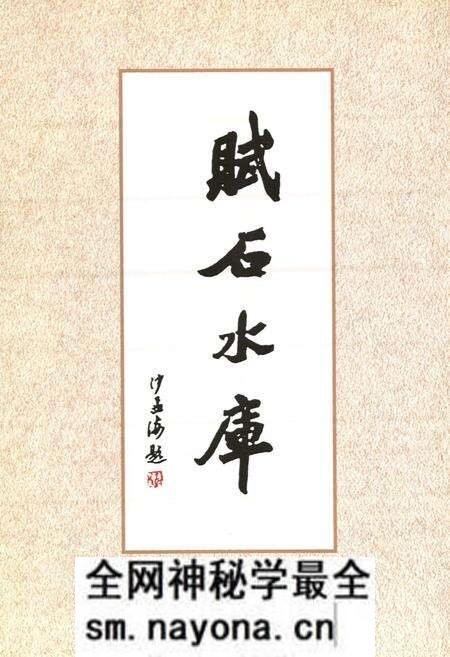 賦石水庫
沙孟海題
全网神秘学最全
sm.nayona.cn